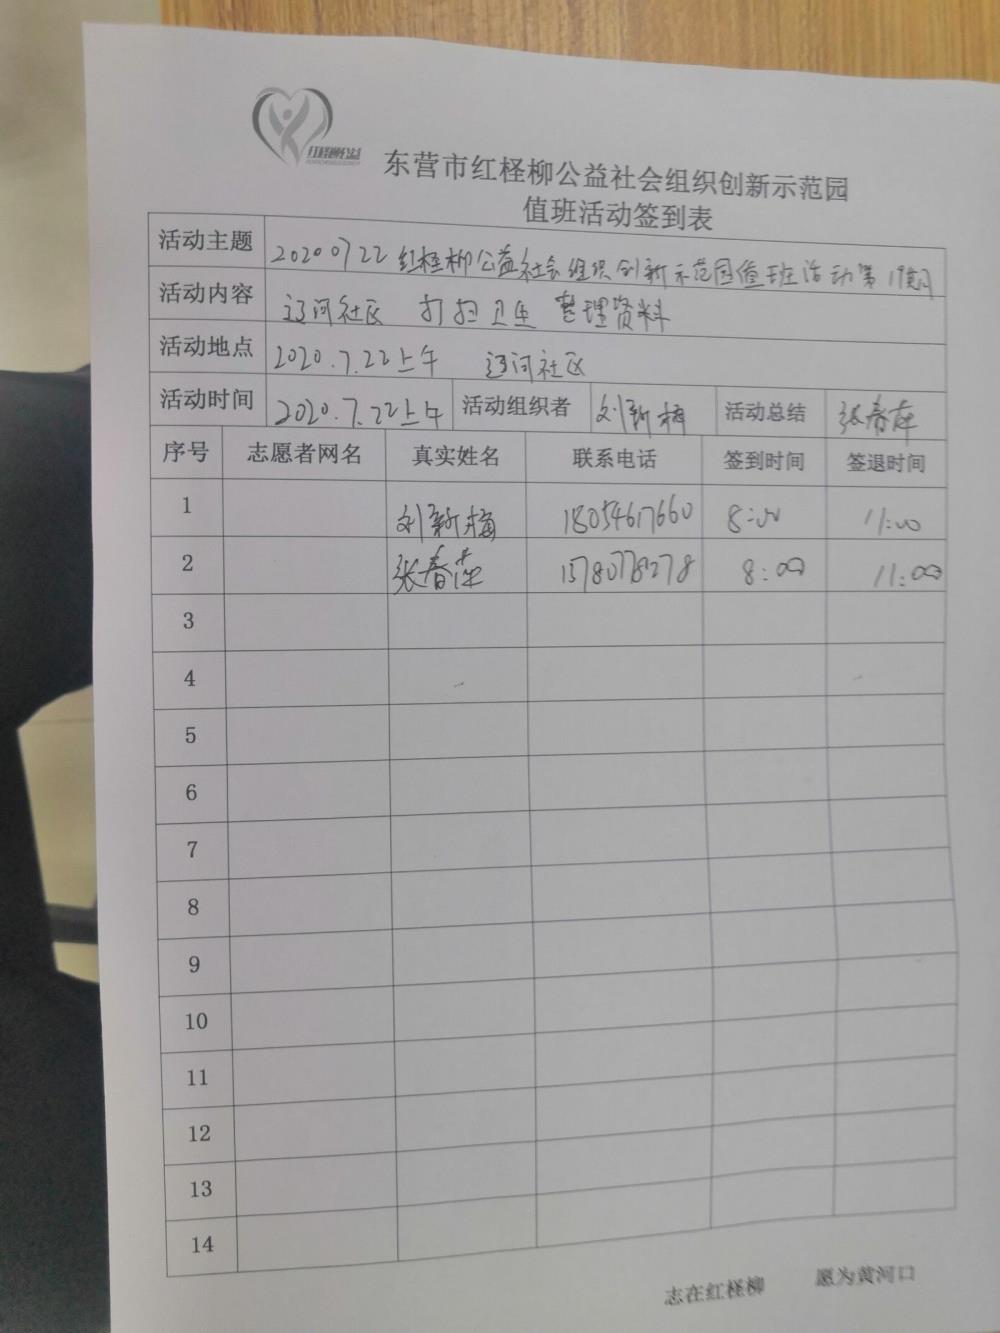 红柽柳公益
东营市红柽柳公益社会组织创新示范园
值班活动签到表
活动主题 20200722红柽柳公益社会组织创新示范园值班活动第17期
活动内容 辽河社区 打扫卫生 整理资料
活动地点 2020.7.22上午 辽河社区
活动时间 2020.7.22上午 活动组织者 刘新梅 活动总结 张春萍
序号 志愿者网名 真实姓名 联系电话 签到时间 签退时间
1 刘新梅 18054617660 8:00 11:00
2 张春萍 15780778278 8:00 11:00
3
4
5
6
7
8
9
10
11
12
13
14
志在红柽柳 愿为黄河口